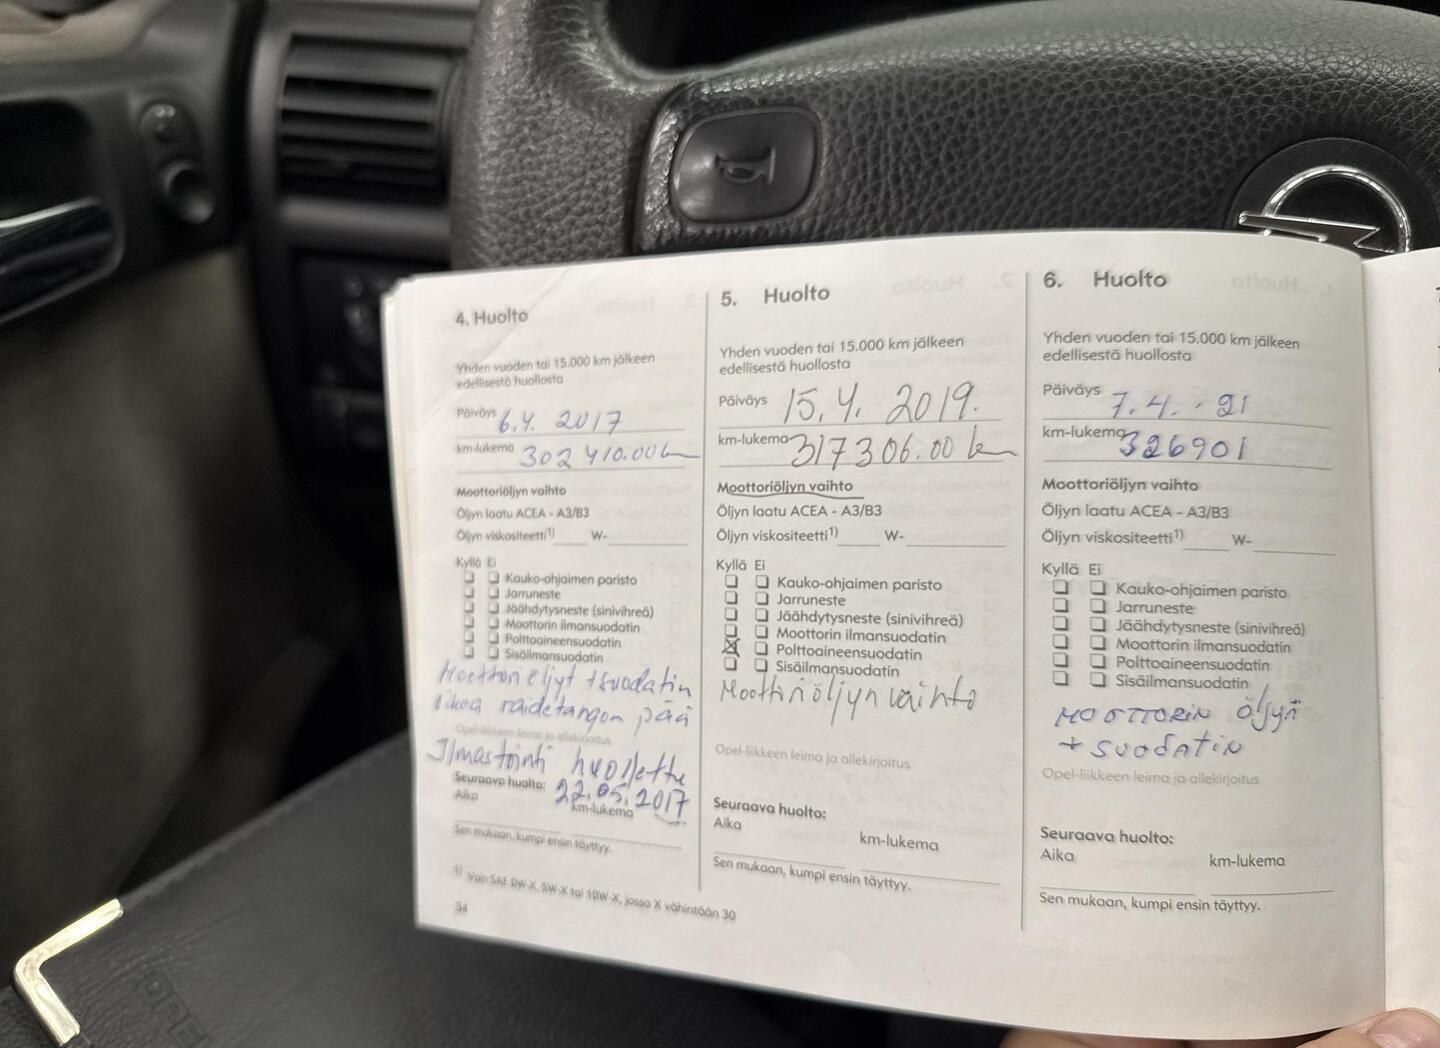 4. Huolto
Yhden vuoden tai 15.000 km jälkeen
edellisestä huollosta
Päiväys 6.4. 2017
km-lukema 302 410.00
Moottoriöljyn vaihto
Öljyn laatu ACEA - A3/B3
Öljyn viskositeetti1) W-
Kyllä Ei
Kauko-ohjaimen paristo
Jarruneste
Jäähdytysneste (sinivihreä)
Moottorin ilmansuodatin
Polttoaineensuodatin
Sisäilmansuodatin
Moottoriöljyt + suodatin
oikea raidetangon pää
Opel-liikkeen leima ja allekirjoitus
Ilmastointi huollettu
Seuraava huolto: 22.05.2017
Aika km-lukema
Sen mukaan, kumpi ensin täyttyy.
1) Vain SAE 0W-X, 5W-X tai 10W-X, jossa X vähintään 30
34
5. Huolto
Yhden vuoden tai 15.000 km jälkeen
edellisestä huollosta
Päiväys 15.4. 2019.
km-lukema 317306.00
Moottoriöljyn vaihto
Öljyn laatu ACEA - A3/B3
Öljyn viskositeetti1) W-
Kyllä Ei
Kauko-ohjaimen paristo
Jarruneste
Jäähdytysneste (sinivihreä)
Moottorin ilmansuodatin
Polttoaineensuodatin
Sisäilmansuodatin
Moottriöljyn vaihto
Opel-liikkeen leima ja allekirjoitus
Seuraava huolto:
Aika km-lukema
Sen mukaan, kumpi ensin täyttyy.
6. Huolto
Yhden vuoden tai 15.000 km jälkeen
edellisestä huollosta
Päiväys 7.4. . 21
km-lukema 326901
Moottoriöljyn vaihto
Öljyn laatu ACEA - A3/B3
Öljyn viskositeetti1) W-
Kyllä Ei
Kauko-ohjaimen paristo
Jarruneste
Jäähdytysneste (sinivihreä)
Moottorin ilmansuodatin
Polttoaineensuodatin
Sisäilmansuodatin
MOOTTORIN öljyn
+ SUODATIN
Opel-liikkeen leima ja allekirjoitus
Seuraava huolto:
Aika km-lukema
Sen mukaan, kumpi ensin täyttyy.